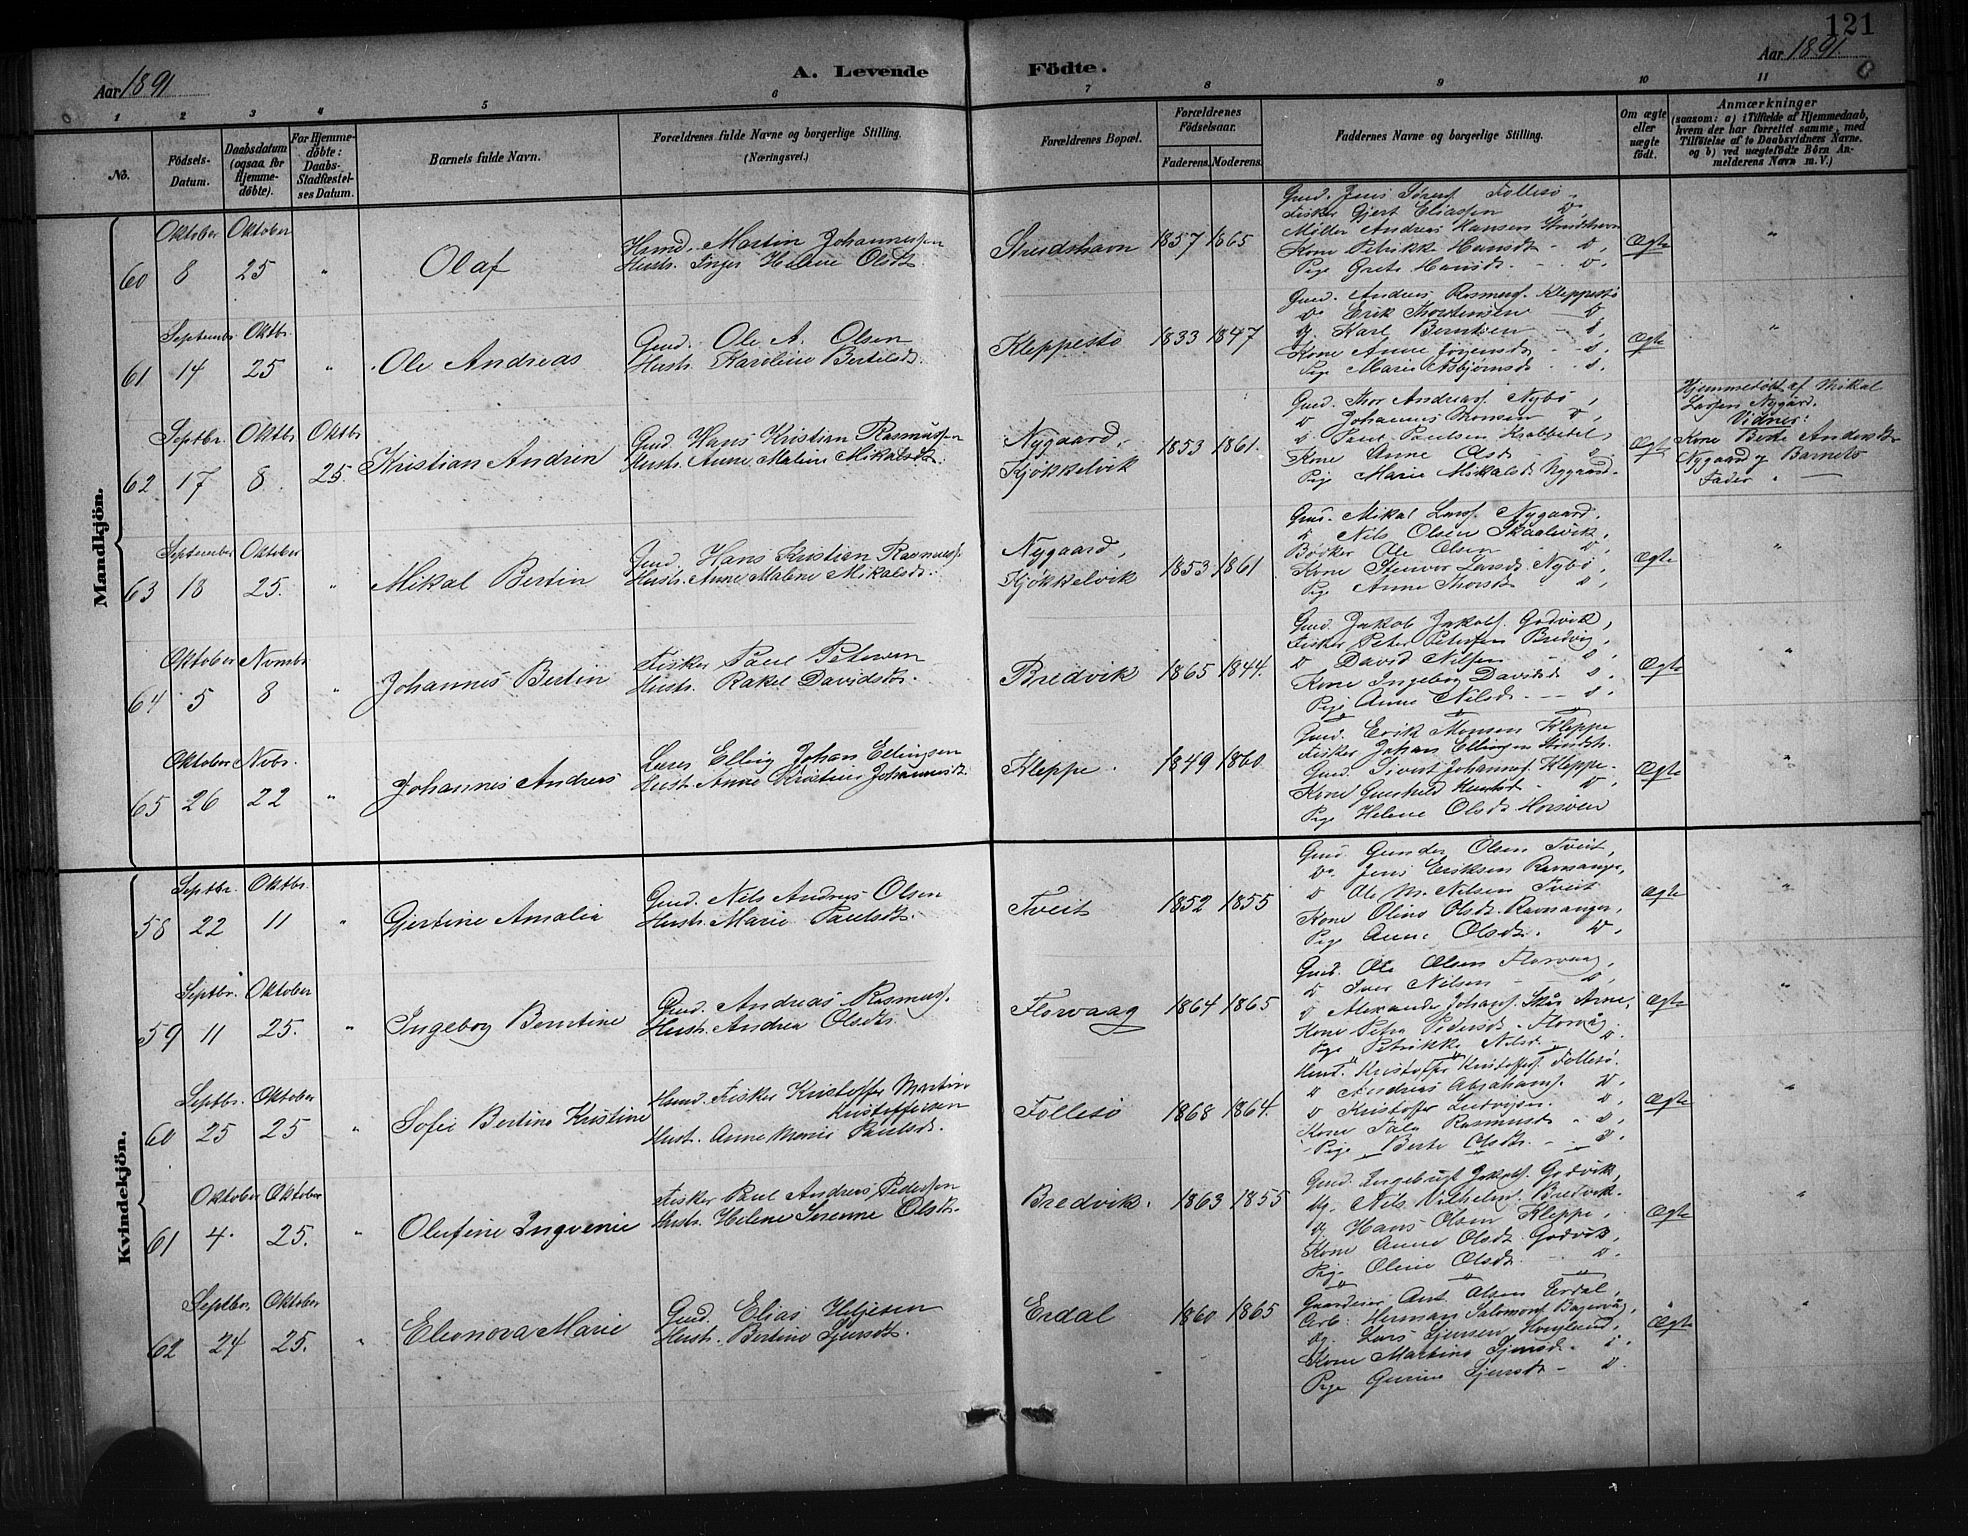 121
Aar 1891
A. Levende
Födte.
Aar 1891.
1 2 3 4 5 6 7 8 9 10 11
No.
Födsels-Datum.
Daabsdatum (ogsaa for Hjemme-döbte).
For Hjemme-döbte: Daabs-Stadfæstelses Datum.
Barnets fulde Navn.
Forældrenes fulde Navne og borgerlige Stilling.
(Næringsvei.)
Forældrenes Bopæl.
Forældrenes Födselsaar.
Faderens. Moderens.
Faddernes Navne og borgerlige Stilling.
Om ægte eller uægte födt.
Anmærkninger
(saasom: a) i Tilfælde af Hjemmedaab, hvem der har forrettet samme, med Tilföielse af to Daabsvidners Navne. og b) ved uægtefödte Börn Anmelderens Navn m. V.)
Mandkjön.
60
Oktober 8
Oktober 25
"
Olaf
Hmd. Martin Johannessen
Hustr. Inger Helene Olsdt.
Strudshavn
1857 1865
Gmd. Jens Sörens. Follesö
Fisker Gjert Eliassen D.
Möller Andreas Hansen Strudshavn
Kone Petrikke Hansdt. D.
Pige Grete Hansdt. D.
Ægte
"
61
Septembr. 14
Oktbr. 25
"
Ole Andreas
Gmd. Ole A. Olsen
Hustr. Karoline Bertelsdt.
Kleppestö
1833 1847
Gmd. Andreas Rasmuss. Kleppestö
Do Erik Thorstensen D
Ug. Karl Berntsen D.
Kone Anne Jörgensdt. D.
Pige Marie Asbjörnsdt. D.
Ægte
"
62
Septbr. 17
Oktbr. 8
Oktbr. 25
Kristian Andrin
Gmd. Hans Kristian Rasmussen
Hustr. Anne Malene Mikalsdt.
Nygaard,
Kjökkelvik
1853 1861.
Gmd. Thor Andreass. Nybö,
D Johannes Monsen D,
D Paul Paulsen Krabbedal,
Kone Anne Olsdt. D.
Pige Marie Mikalsdt. Nygaard.
Ægte
Hjemmedöbt af Mikal
Larsen Nygård.
Vidner:
Kone Berte Andersdt.
Nygaard og Barnets
Fader.
63
September 18
Oktober 25.
"
Mikal Bertin
Gmd. Hans Kristian Rasmuss.
Hustr. Anne Malene Mikalsdt.
Nygaard,
Kjökkelvik
1853 1861
Gmd. Mikal Larss. Nygaard,
D Nils Olsen Skaalevik,
Bödker Ole Olsen D.
Kone Stenvor Larsdt. Nybö,
Pige Anne Thorsdt. D,
Ægte
"
64
Oktober 5
Novmbr. 8
"
Johannes Bertin
Fisker Paul Petersen
Hustr. Rakel Davidsdt.
Bredvik
1865 1844.
Gmd. Jakob Jakobs. Godvik,
Fisker Peter Petersen Bredvig,
D David Nilsen D.
Kone Ingeborg Davidsdt. D.
Pige Anna Nilsdt. D.
Ægte
"
65
Oktober 26
Novbr. 22
"
Johannes Andreas
Lærer Elling Johan Ellingsen
Hustr. Anne Kristine Johannesdt.
Kleppe.
1849 1860.
Gmd. Erik Monsen Kleppe
Fisker Johan Ellingsen Strudsh.
Gmd. Sivert Johanness. Kleppe.
Kone Gunhild D.
Pige Helene Olsdt.
Ægte
"
Kvindekjön.
58
Septbr. 22
Oktbr. 11
"
Gjertine Amalia
Gmd. Nils Andreas Olsen
Hustr. Marie Paulsdt.
Tveit
1852 1855
Gmd. Gunder Olsen Tveit,
Do Jens Eriksen Ravnanger,
D Ole M. Nilsen Tveit
Kone Oline Olsdt. Ravnanger,
Pige Anne Olsdt. D,
Ægte
"
59
Septbr. 11
Oktober 25.
"
Ingeborg Berntine
Gmd. Andreas Rasmuss.
Hustr. Andrea Olsdtr.
Florvaag
1864 1865
Gmd. Ole Olsen Florvaag,
D Iver Nilsen D,
D Alexander Johans. Skår Arne,
Kone Petra Pedersdt. Florvåg
Pige Petrikke Nilsdt. D.
Ægte
"
60
Septbr. 25
Oktober 25
"
Sofie Bertine Kristine
Hmd. Fisker Kristoffer Martin
Kristoffersen
Hustr. Anne Marie Paulsdt.
Follesö
1868 1864.
Hmd. Kristoffer Kristoffers. Follesö.
D Andreas Abrahams. D.
D Kristoffer Ludvigsen. D.
Kone Rasmusdt. D,
Pige Berte Olsdtr. D.
Ægte
"
61
Oktober 4.
Oktober 25.
"
Olufine Ingvenie
Fisker Paul Andreas Pedersen
Hustr. Helene Serenne Olsdt.
Bredvik.
1863 1855
Gmd. Ingebrigt Jakobs. Godvik,
Ug. Nils Vilhelm. Bredvik.
Ug. Hans Olsen Kleppe,
Kone Anne Olsdt. Godvik,
Pige Oline Olsdt. D.
Ægte
"
62
Septbr. 24
Oktober 25.
"
Eleonora Marie
Gmd. Elias Heljesen
Hustr. Bertine Sjursdt.
Erdal
1860 1865
Gaardeier Ant. Olsen Erdal,
Arb. Herman Salomons.
Ug. Lars Sjursen
Kone Martine Sjursdt. D.
Pige Gurine Sjursdt. D.
Ægte
"